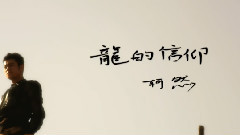 龍的信仰
柯然